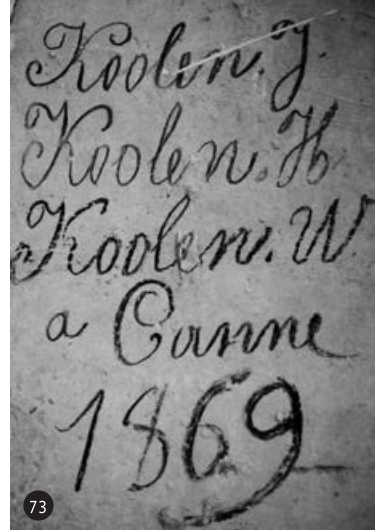 Koolen. J.
Koolen. H
Koolen. W
a Canne
1869
73